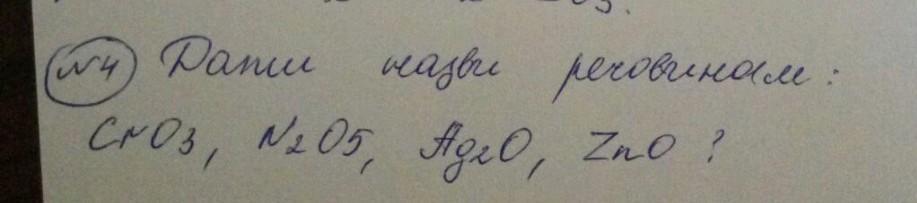 №4 Дати назви речовинам:
CrO3, N2O5, Ag2O, ZnO?